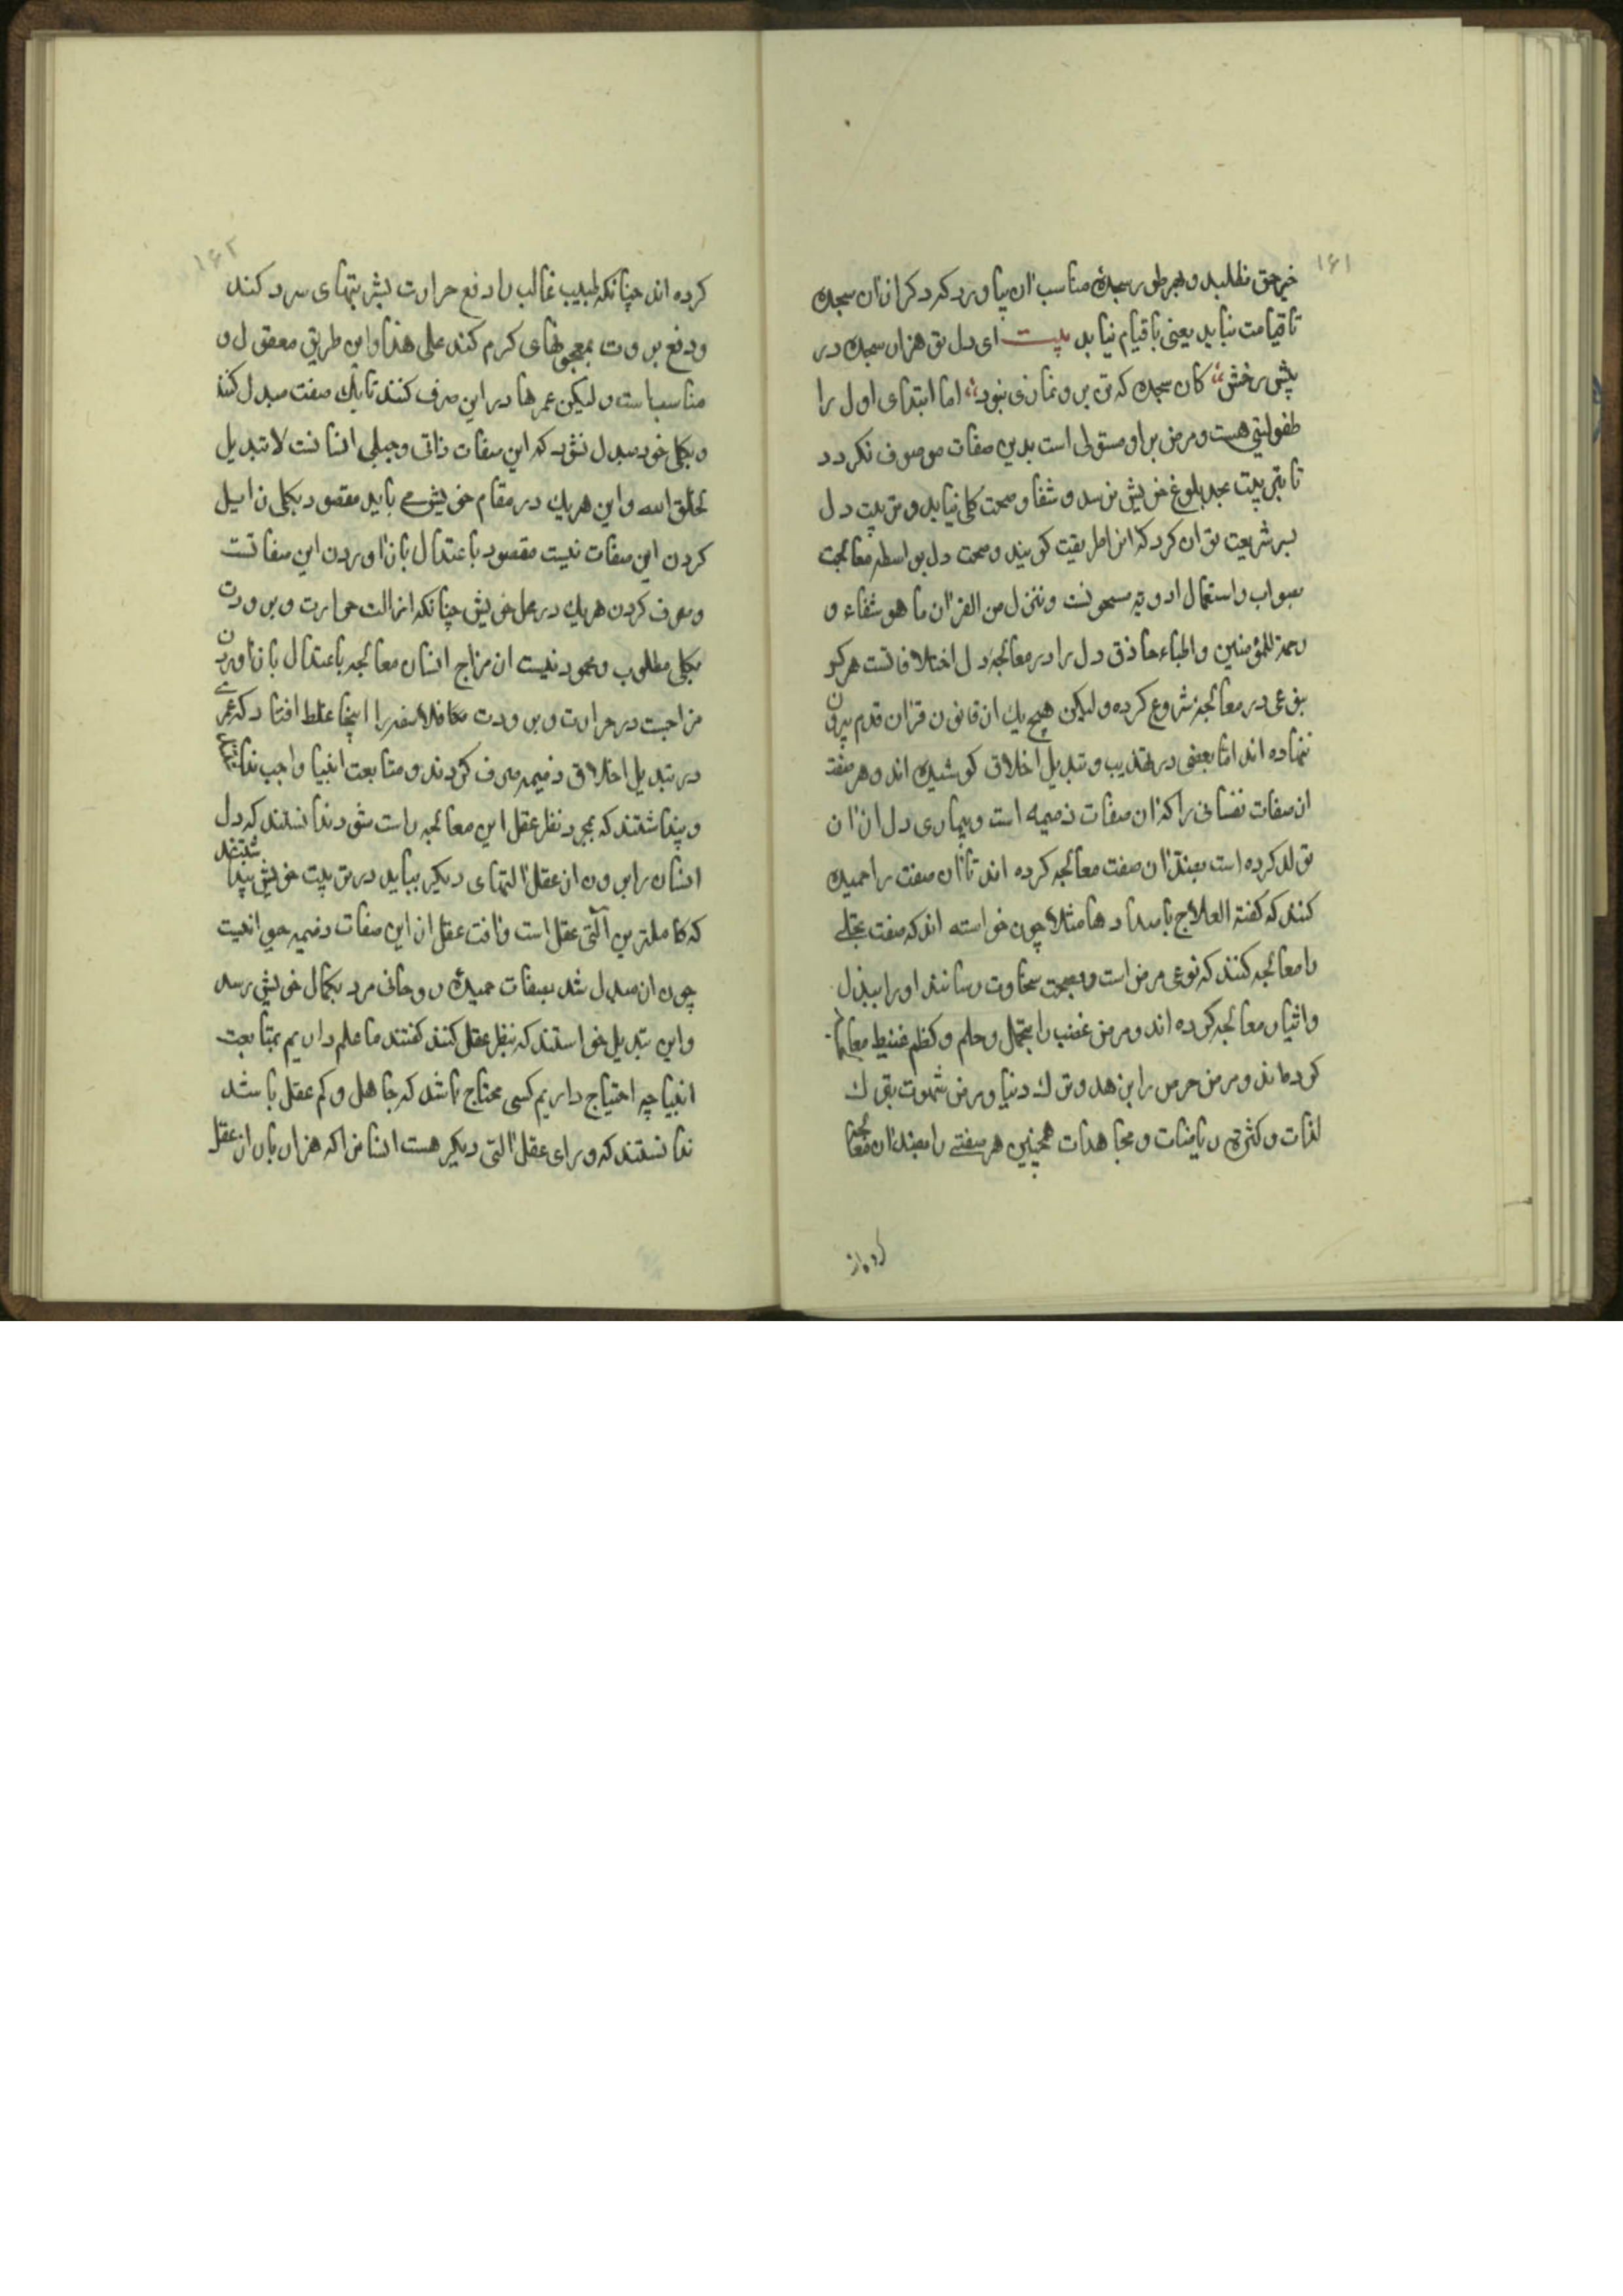 ۱۶۱
خیر حق نطلبد و بهر طور سجدهٔ مناسب آن بیاورد که دکر ازان سجده
تا قیامت نیاید یعنی با قیام نیاید بیت ای دل تو هزار سجده در
پیش رخش کان سجده که تو بری نمازی نبود اما ابتدای اول را
طفولیتی هست و مرض بر او مستولی است بدین صفات موصوف نکردد
تا بتربیت بحد بلوغ خویش نرسد و شفا و صحت کلی نیابد و تربیت دل
بسر شریعت توان کرد که انرا طریقت کویند و صحت دل بواسطه معالجت
بصواب و استعمال ادویه مسحونست و ننزل من القرآن ما هو شفاء و
رحمة للمؤمنین و اطباء حاذق دل را در معالجه دل اختلافاتست هر کو
بنوعی در معالجه شروع کرده و لیکن هیچ یک از قانون قرآن قدم بیرون
ننهاده اند اما بعضی در تهذیب و تبدیل اخلاق کوشیده اند و هر صفت
از صفات نفسانی را که آن صفات ذمیمه است و بیماری دل از آن
تولد کرده است بضد آن صفت معالجه کرده اند تا آن صفت را حمیده
کنند که کفته العلاج باضدادها مثلا چون خواسته اند که صفت بخلی
را معالجه کنند که نوعی مرض است و بصحت سخاوت رسانند او را ببذل
و اثیار معالجه کرده اند و مرض غضب را بتحمل و حلم و کظم غیظ معالجه
کرده اند و مرض حرص را بزهد و ترک دنیا و مرض شهوت بترک
لذات و کثرة ریاضات و مجاهدات همچنین هر صفتی را بضد آن معالجه
کرده اند
۱۶۲
کرده اند چنانکه طبیب غالب را دفع حرارت بشربتهای سرد کند
و دفع برودت بمعجونهای کرم کند علی هذا و این طریق معقول و
مناسب است و لیکن عمرها در این صرف کنند تا یک صفت مبدل کنند
و بکلی خود مبدل نشود که این صفات ذاتی و جبلی انسانست لا تبدیل
لخلق الله و این هریک در مقام خویش می باید مقصود بکلی زایل
کردن این صفات نیست مقصود باعتدال باز آوردن این صفاتست
و صرف کردن هریک در محل خویش چنانکه ازالت حرارت و برودت
بکلی مطلوب و محمود نیست از مزاج انسان معالجه باعتدال باز آوردن
مزاجست در حرارت و برودت فلاسفه را اینجا غلط افتاد که عمر
در تبدیل اخلاق ذمیمه صرف کردند و متابعت انبیا واجب ندانستند
و پنداشتند که بمجرد نظر عقل این معالجه راست شود ندانستند که دل
انسان را برون از عقل آلتهای دیکر بباید در تربیت خویش پنداشتند
که کاملترین آلتی عقل است و آفت عقل از این صفات ذمیمه حیوانیت
چون ان مبدل شد بصفات حمیده روحانی مرد بکمال خویش رسد
و این تبدیل خواستند که بنظر عقل کنند کفتند ما علم داریم بمتابعت
انبیا چه احتیاج داریم کسی محتاج باشد که جاهل و کم عقل باشد
ندانستند که ورای عقل آلتی دیکر هست انسانرا که هزار بار از عقل